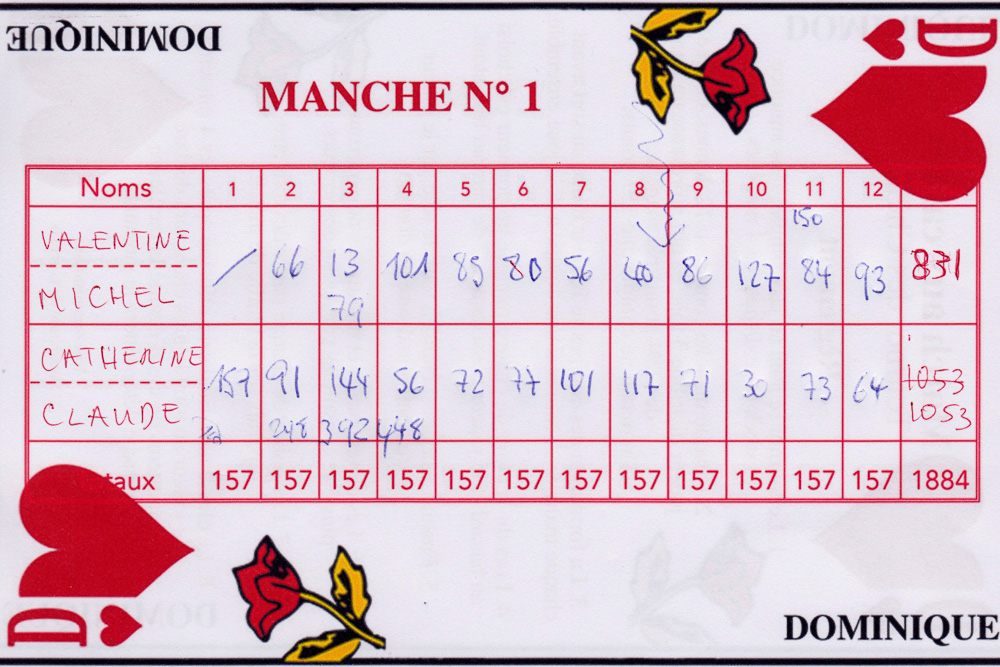 DOMINIQUE
D
MANCHE N° 1
Noms 1 2 3 4 5 6 7 8 9 10 11 12
150
VALENTINE
/ 66 13 101 85 80 56 40 86 127 84 93 831
MICHEL
79
CATHERINE
157 91 144 56 72 77 101 117 71 30 73 64 1053
CLAUDE 1053
248 392 448
taux 157 157 157 157 157 157 157 157 157 157 157 157 1884
D
DOMINIQUE